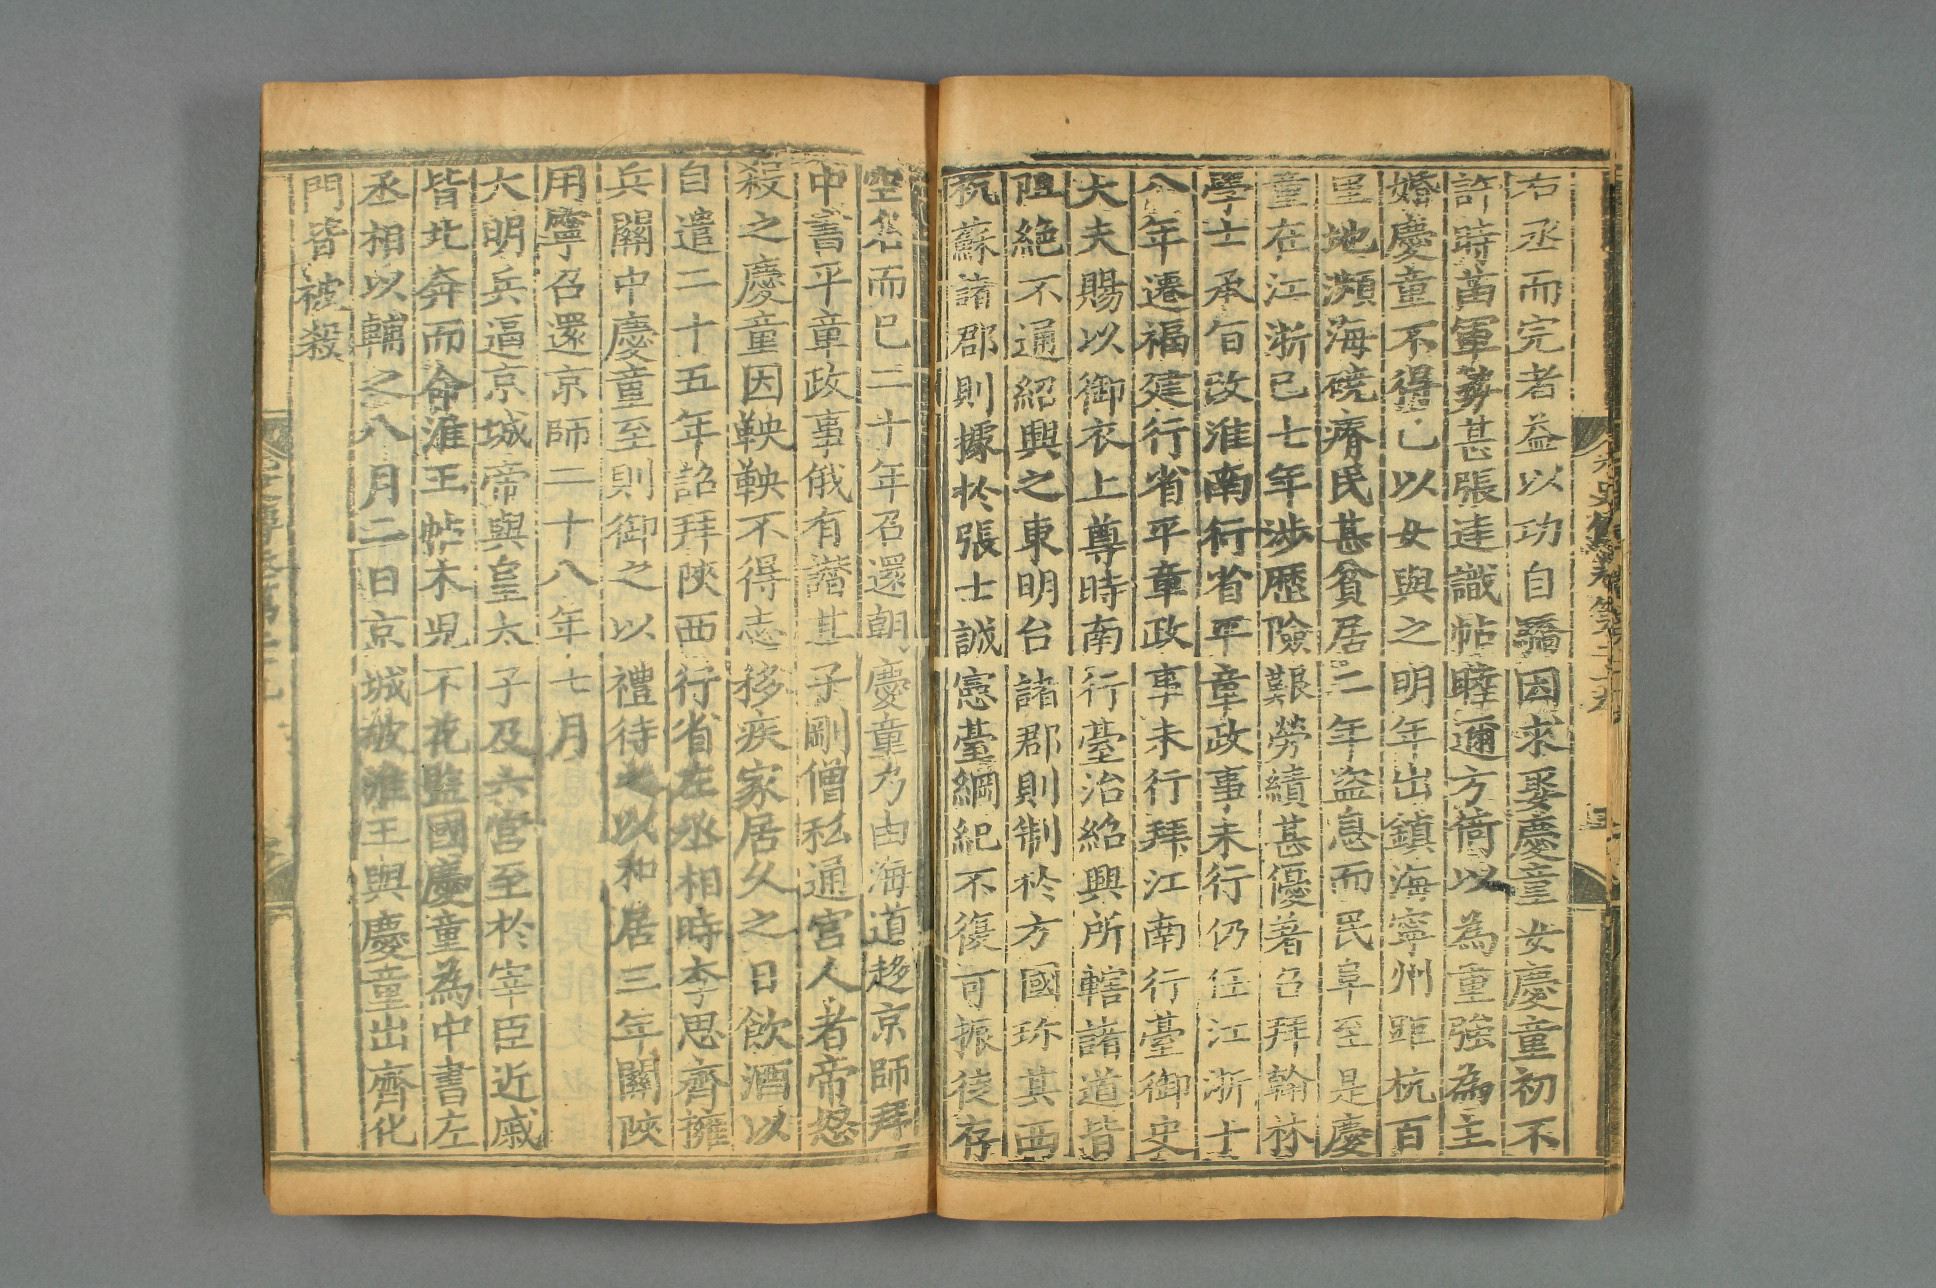 右丞而完者益以功自驕因求娶慶童女慶童初不
許時苗軍勢甚張達識帖睦邇方倚以為重強為主
婚慶童不得已以女與之明年出鎮海寧州距杭百
里地瀕海磽瘠民甚貧居二年盗息而民阜至是慶
童在江浙已七年涉歷險艱勞績甚優著召拜翰林
學士承旨改淮南行省平章政事未行仍任江浙十
八年遷福建行省平章政事未行拜江南行臺御史
大夫賜以御衣上尊時南行臺治紹興所轄諸道皆
阻絶不通紹興之東明台諸郡則制於方國珍其西
杭蘇諸郡則據於張士誠憲臺綱紀不復可振徒存
空名而已二十年召還朝慶童乃由海道趍京師拜
中書平章政事俄有譖其子剛僧私通宫人者帝怒
殺之慶童因鞅鞅不得志移疾家居久之日飲酒以
自遣二十五年詔拜陜西行省左丞相時李思齊擁
兵關中慶童至則御之以禮待之以和居三年關陜
用寧召還京師二十八年七月
大明兵逼京城帝與皇太子及六宫至於宰臣近戚
皆北奔而命淮王帖木児不花監國慶童為中書左
丞相以輔之八月二日京城破淮王與慶童出齊化
門皆被殺